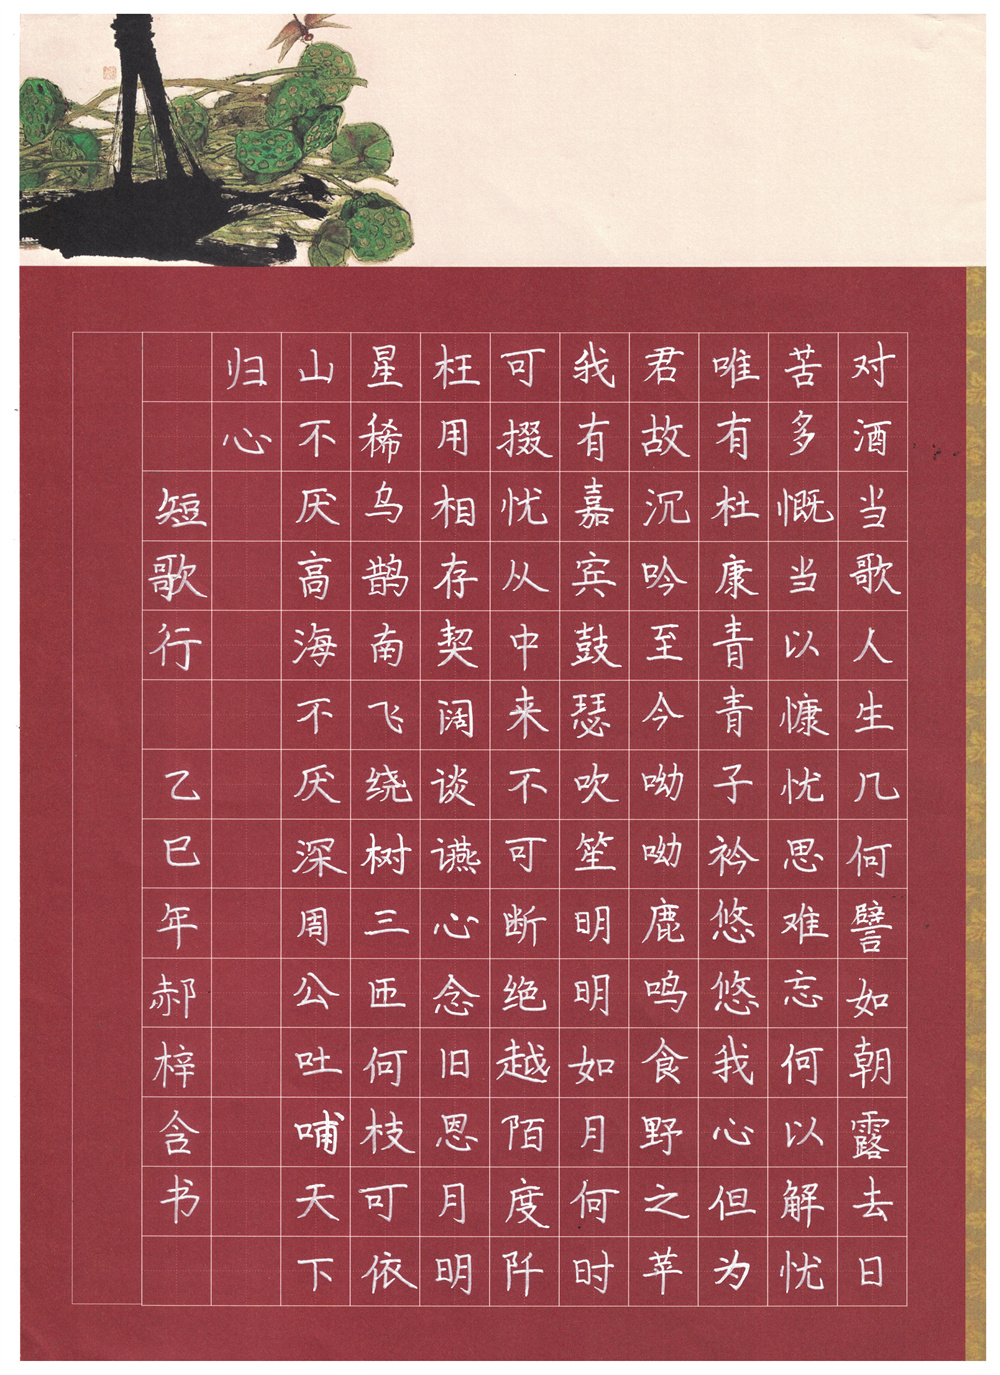 对酒当歌人生几何譬如朝露去日
苦多慨当以慷忧思难忘何以解忧
唯有杜康青青子衿悠悠我心但为
君故沉吟至今呦呦鹿鸣食野之苹
我有嘉宾鼓瑟吹笙明明如月何时
可掇忧从中来不可断绝越陌度阡
枉用相存契阔谈䜩心念旧恩月明
星稀乌鹊南飞绕树三匝何枝可依
山不厌高海不厌深周公吐哺天下
归心
短歌行 乙巳年郝梓含书